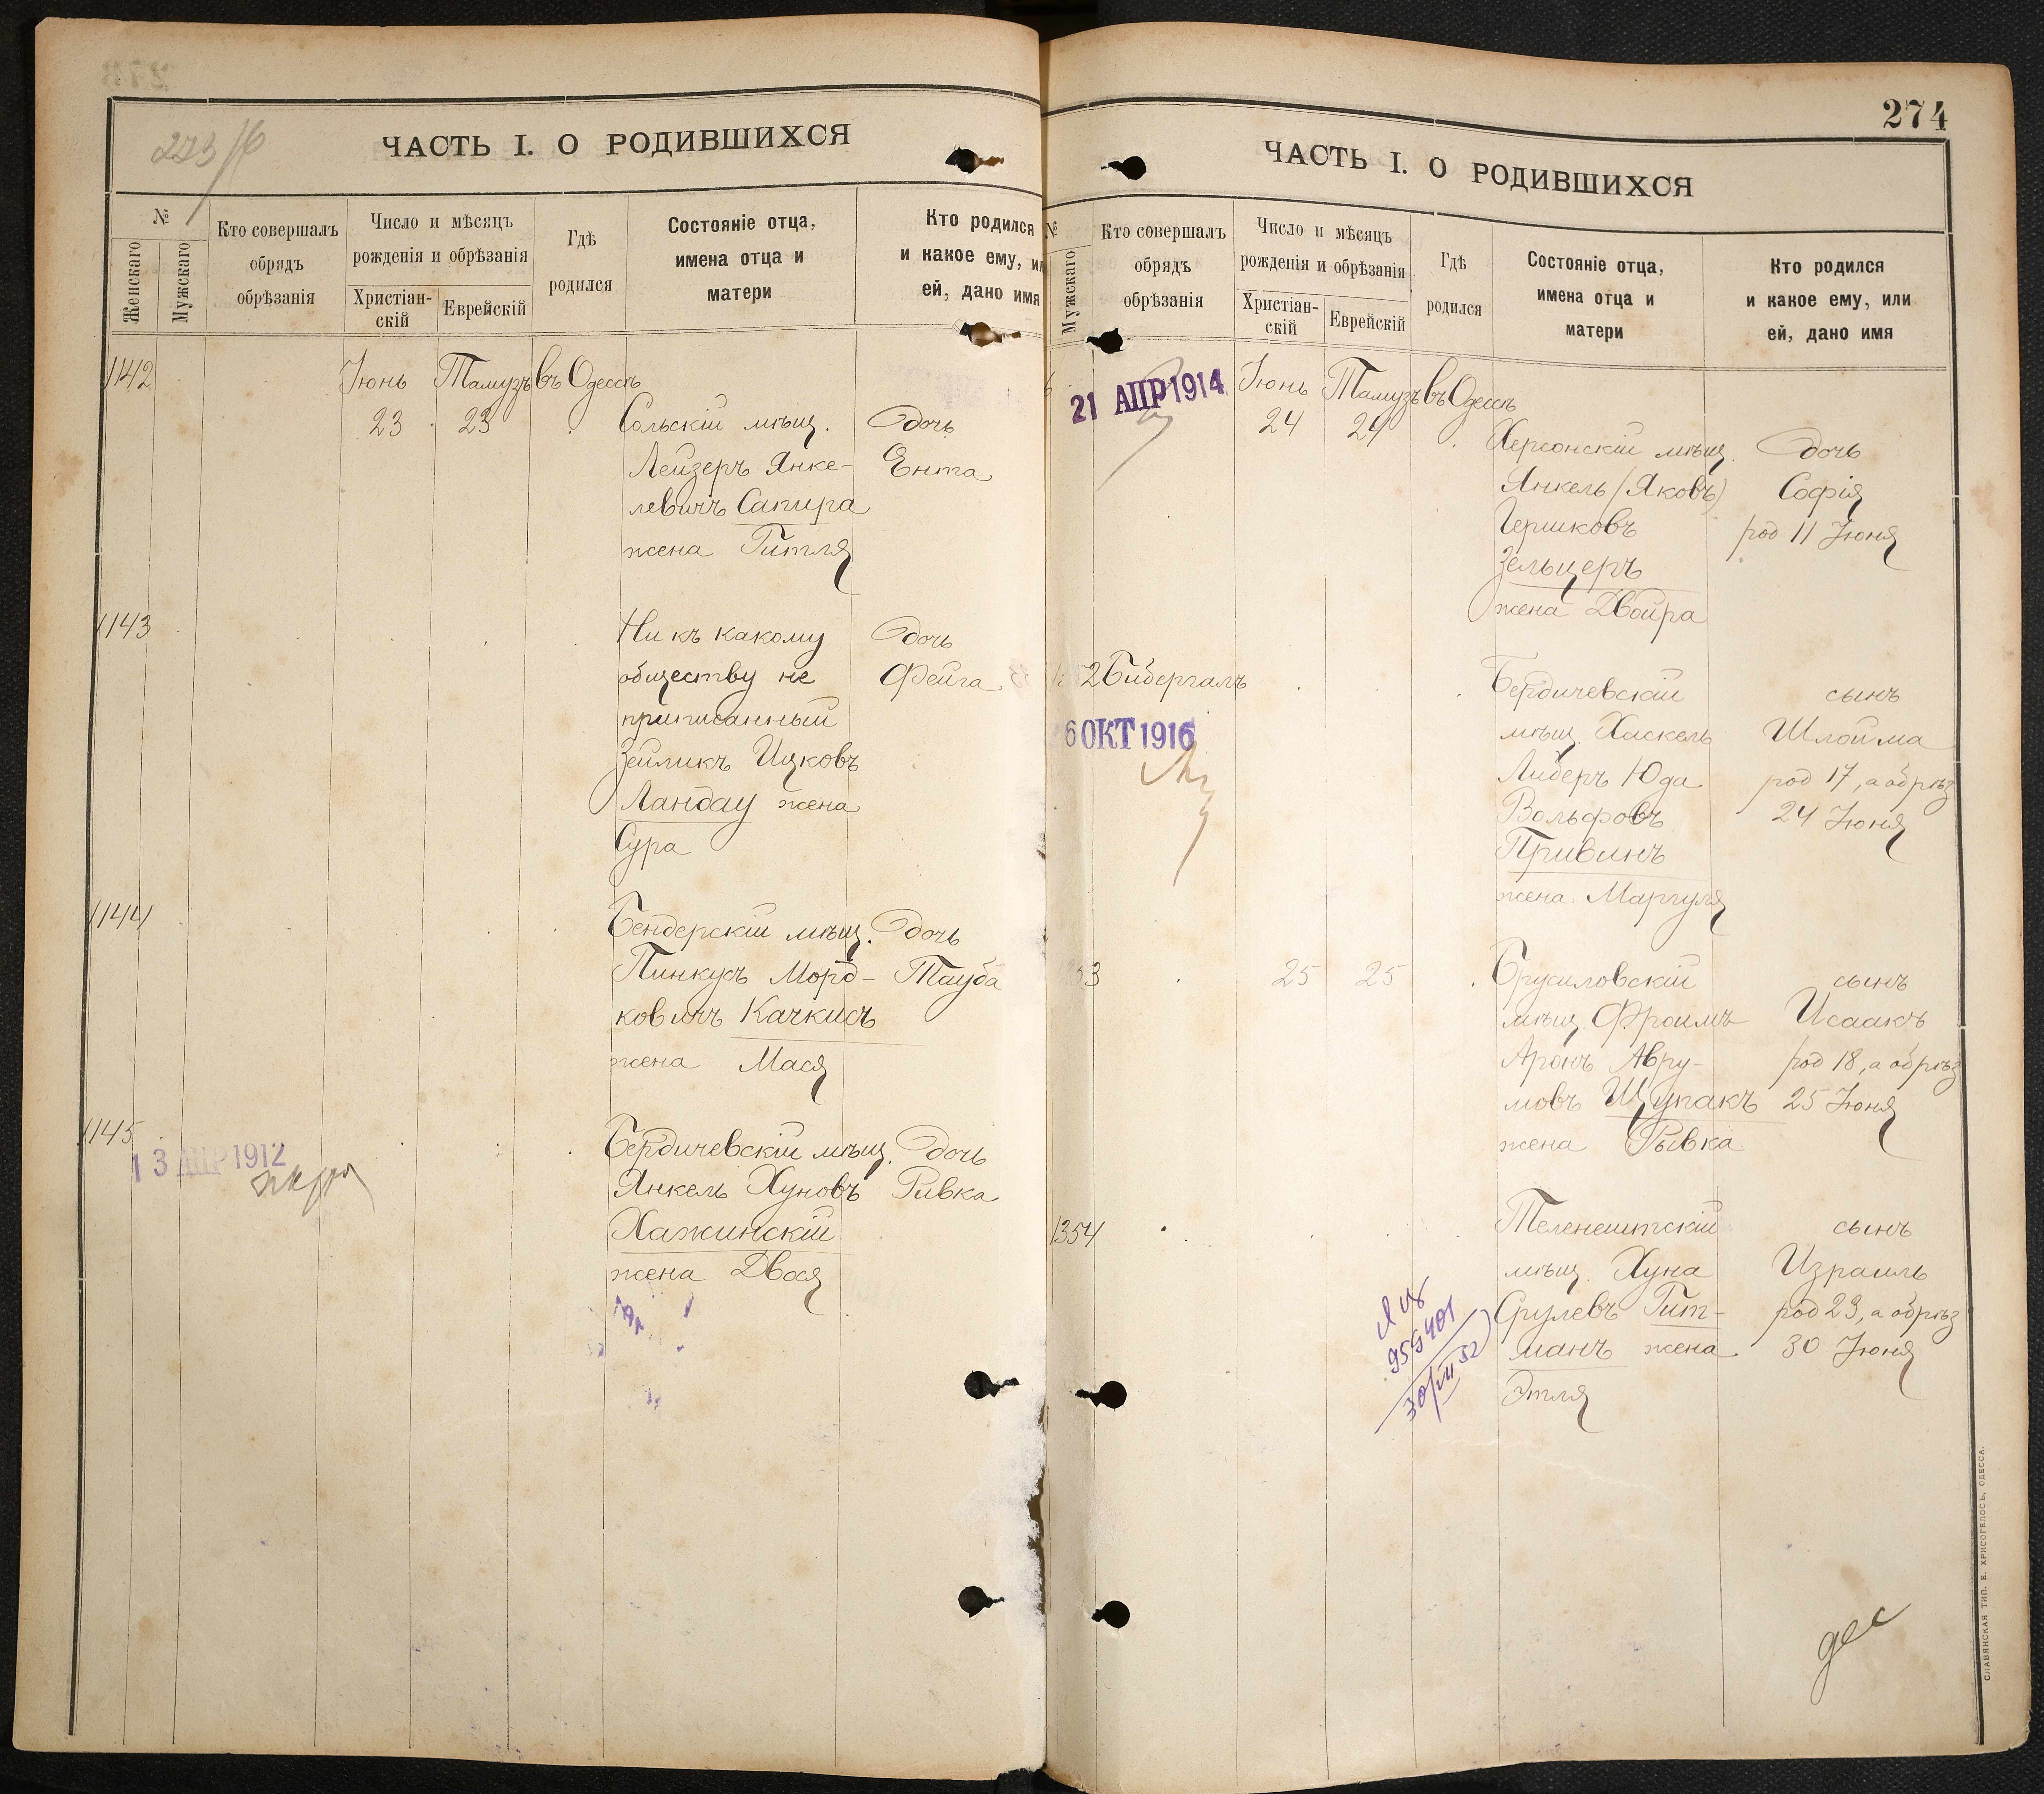 273/б
ЧАСТЬ I. О РОДИВШИХСЯ
№
Женскаго
Мужскаго
Кто совершалъ
обрядъ
обрѣзанія
Число и мѣсяцъ
рожденія и обрѣзанія
Христіан-
скій
Еврейскій
Гдѣ
родился
Состояніе отца,
имена отца и
матери
Кто родился
и какое ему, или
ей, дано имя
1142
Іюнь Тамузъ въ Одессѣ
23 23
Сольскій мѣщ.
Лейзеръ Янке-
левичъ Сапира
жена Гитля
дочь
Ента
1143
Ни къ какому
обществу не
приписанный
Зейликъ Ицковъ
Ландау жена
Сура
дочь
Фейга
1144
Бендерскій мѣщ.
Пинкусъ Морд-
ковичъ Качкисъ
жена Мася
дочь
Тауба
1145
13 АПР 1912
Бердичевскій мѣщ.
Янкель Хуновъ
Хажинскій
жена Двося
дочь
Ривка
274
ЧАСТЬ I. О РОДИВШИХСЯ
№
Мужскаго
Кто совершалъ
обрядъ
обрѣзанія
Число и мѣсяцъ
рожденія и обрѣзанія
Христіан-
скій
Еврейскій
Гдѣ
родился
Состояніе отца,
имена отца и
матери
Кто родился
и какое ему, или
ей, дано имя
21 АПР 1914
Іюнь Тамузъ въ Одессѣ
24 24
Херсонскій мѣщ.
Янкель (Яковъ)
Гершковъ
Зельцеръ
жена Двойра
дочь
Софія
род 11 Іюня
2 Бибергалъ
6 ОКТ 1916
Бердичевскій
мѣщ. Хаскель
Либеръ Юда
Вольфовъ
Привинъ
жена Маргуля
сынъ
Шлойма
род 17, а обрѣз
24 Іюня
53
25 25
Брусиловскій
мѣщ. Фроимъ
Аронъ Авру-
мовъ Щупакъ
жена Рывка
сынъ
Исаакъ
род 18, а обрѣз
25 Іюня
1354
Теленештскій
мѣщ. Хуна
Срулевъ Гит-
манъ жена
Этля
сынъ
Израиль
род 23, а обрѣз
30 Іюня
955401
30/VII 52
дес
СЛАВЯНСКАЯ ТИП. Е. ХРИСОГЕЛОСЪ, ОДЕССА.